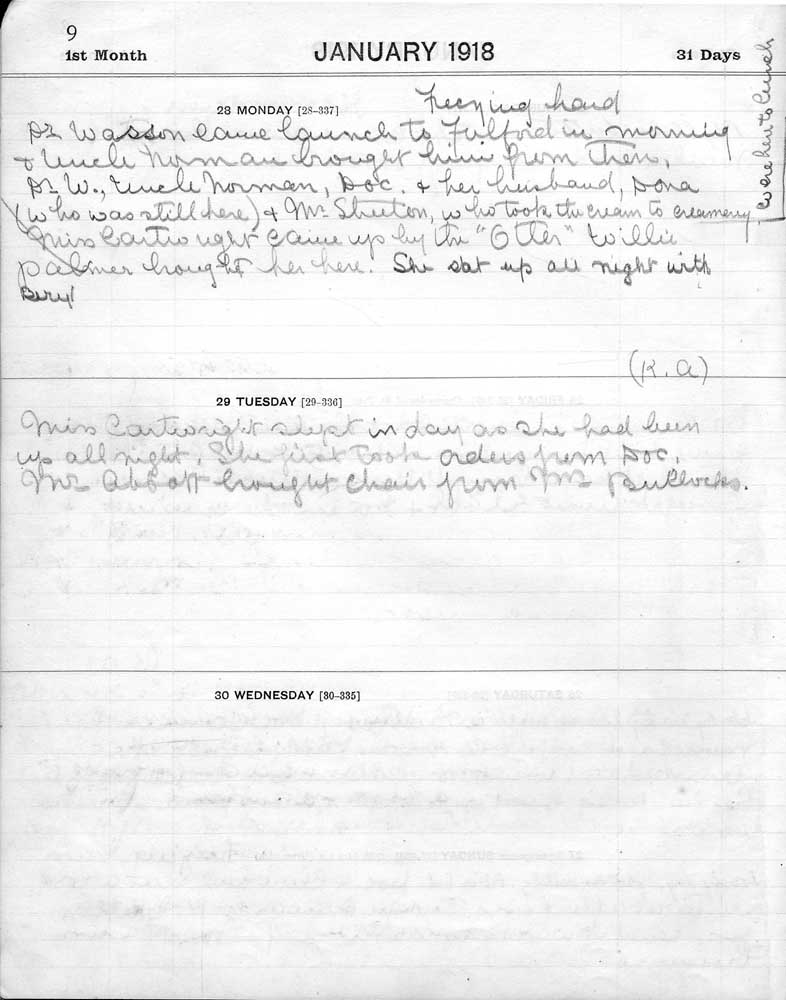 9
1st Month
JANUARY 1918
31 Days
28 MONDAY [28-337]
Freezing hard
Dr Wasson came launch to Fulford in morning
& Uncle Norman brought him from then.
Dr W., Uncle Norman, Doc. & her husband, Dona
(who was still here) & Mr Shelton, who took the cream to creamery,
were here to lunch
Miss Cartwright came up by the "Otter" Willie
Palmer brought her here. She sat up all night with
Beryl
(K.A)
29 TUESDAY [29-336]
Miss Cartwright slept in day as she had been
up all night. She first took orders from Doc.
Mr Abbott brought chair from Mrs Bullocks.
30 WEDNESDAY [30-335]